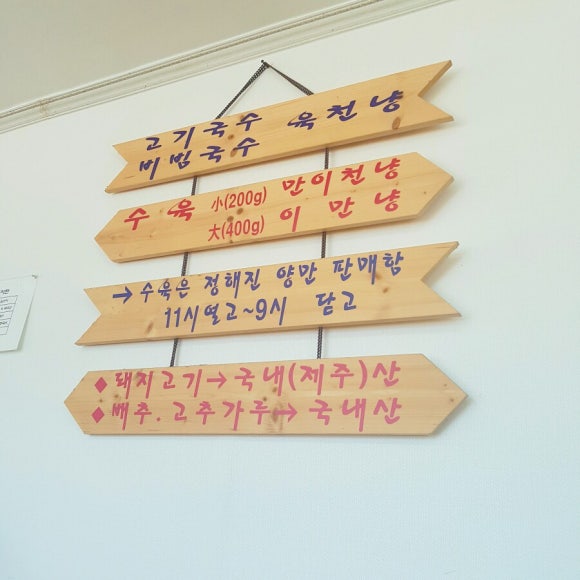 고기국수 육천냥
비빔국수
수육 小(200g) 만이천냥
大(400g) 이만냥
→수육은 정해진 양만 판매함
11시열고~9시 닫고
◆돼지고기→국내(제주)산
◆배추.고추가루→국내산